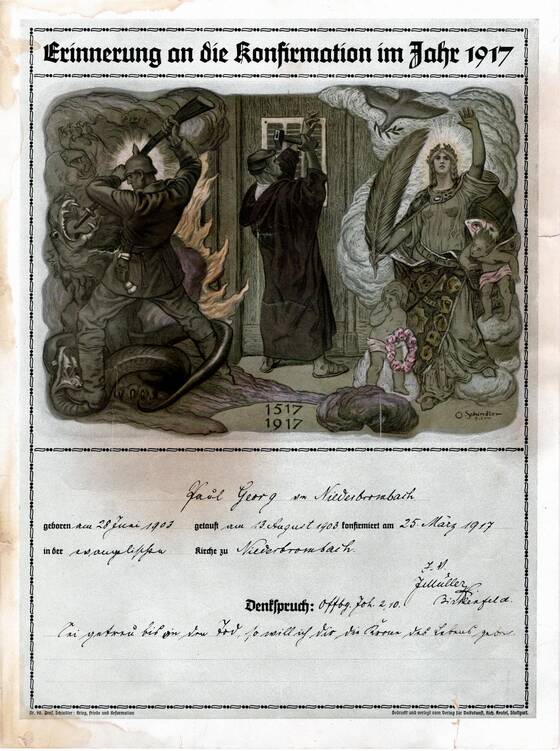 Erinnerung an die Konfirmation im Jahr 1917
1517
1917
O. Schindler
Paul Georg von Niederbrombach
geboren am 28 Juni 1903 getauft am 13 August 1903 konfirmiert am 25 März 1917
in der evangelischen Kirche zu Niederbrombach.
J. V.
J Müller
Birkenfeld.
Denkspruch: Offbg. Joh. 2,10.
Sei getreu bis an den Tod, so will ich dir die Krone des Lebens geben.
Prof. Schindler: Krieg, Friede und Reformation
Gedruckt und verlegt vom Verlag für Volkskunst, Rich. Keutel, Stuttgart.